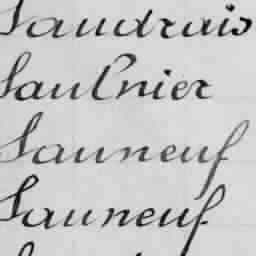 Saudrais
Saulnier
Sauneuf
Sauneuf